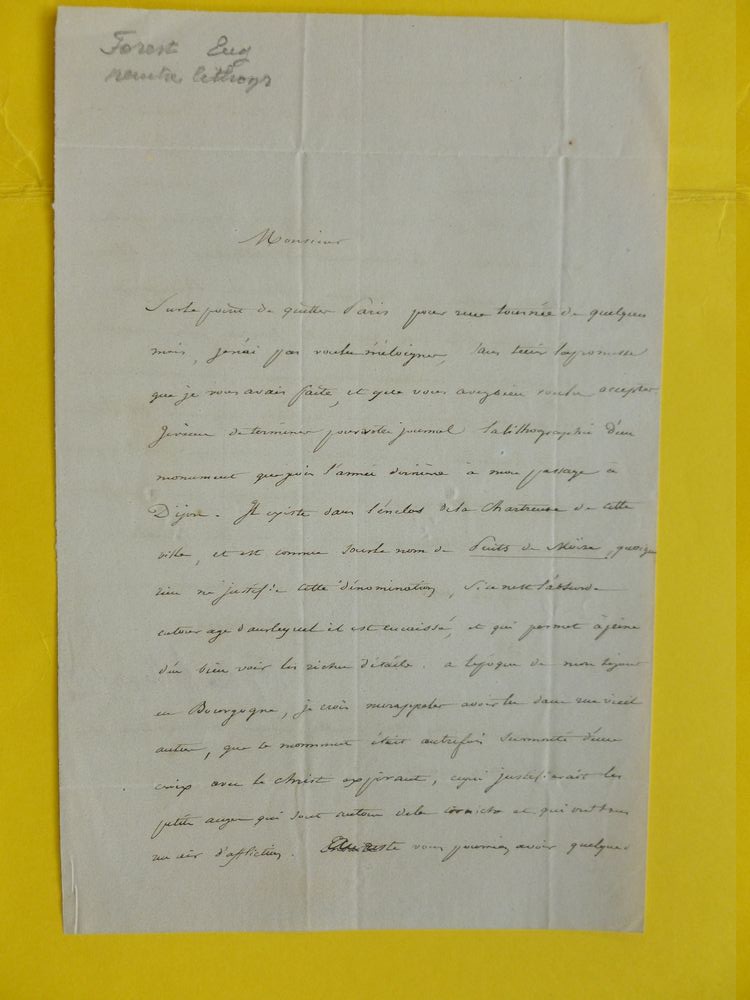 Forest Eug
peintre lithogr
Monsieur
Sur le point de quitter Paris pour une tournée de quelques
mois, je n'ai pas voulu m'éloigner, sans tenir la promesse
que je vous avais faite, et que vous avez bien voulu accepter.
Je viens de terminer pour votre journal la lithographie d'un
monument que je vis l'année dernière à mon passage à
Dijon. Il existe dans l'enclos de la Chartreuse de cette
ville, et est connu sous le nom de Puits de Moïse, quoique
rien ne justifie cette dénomination, si ce n'est l'absurde
entourage dans lequel il est encaissé, et qui permet à peine
d'en bien voir les riches détails. a l'époque de mon séjour
en Bourgogne, je crois me rappeler avoir lu dans un vieil
auteur, que ce monument était autrefois surmonté d'une
croix avec le Christ expirant, ce qui justifierait les
petits anges qui sont autour de la corniche et qui ont tous
un air d'affliction. Au reste vous pourriez avoir quelques